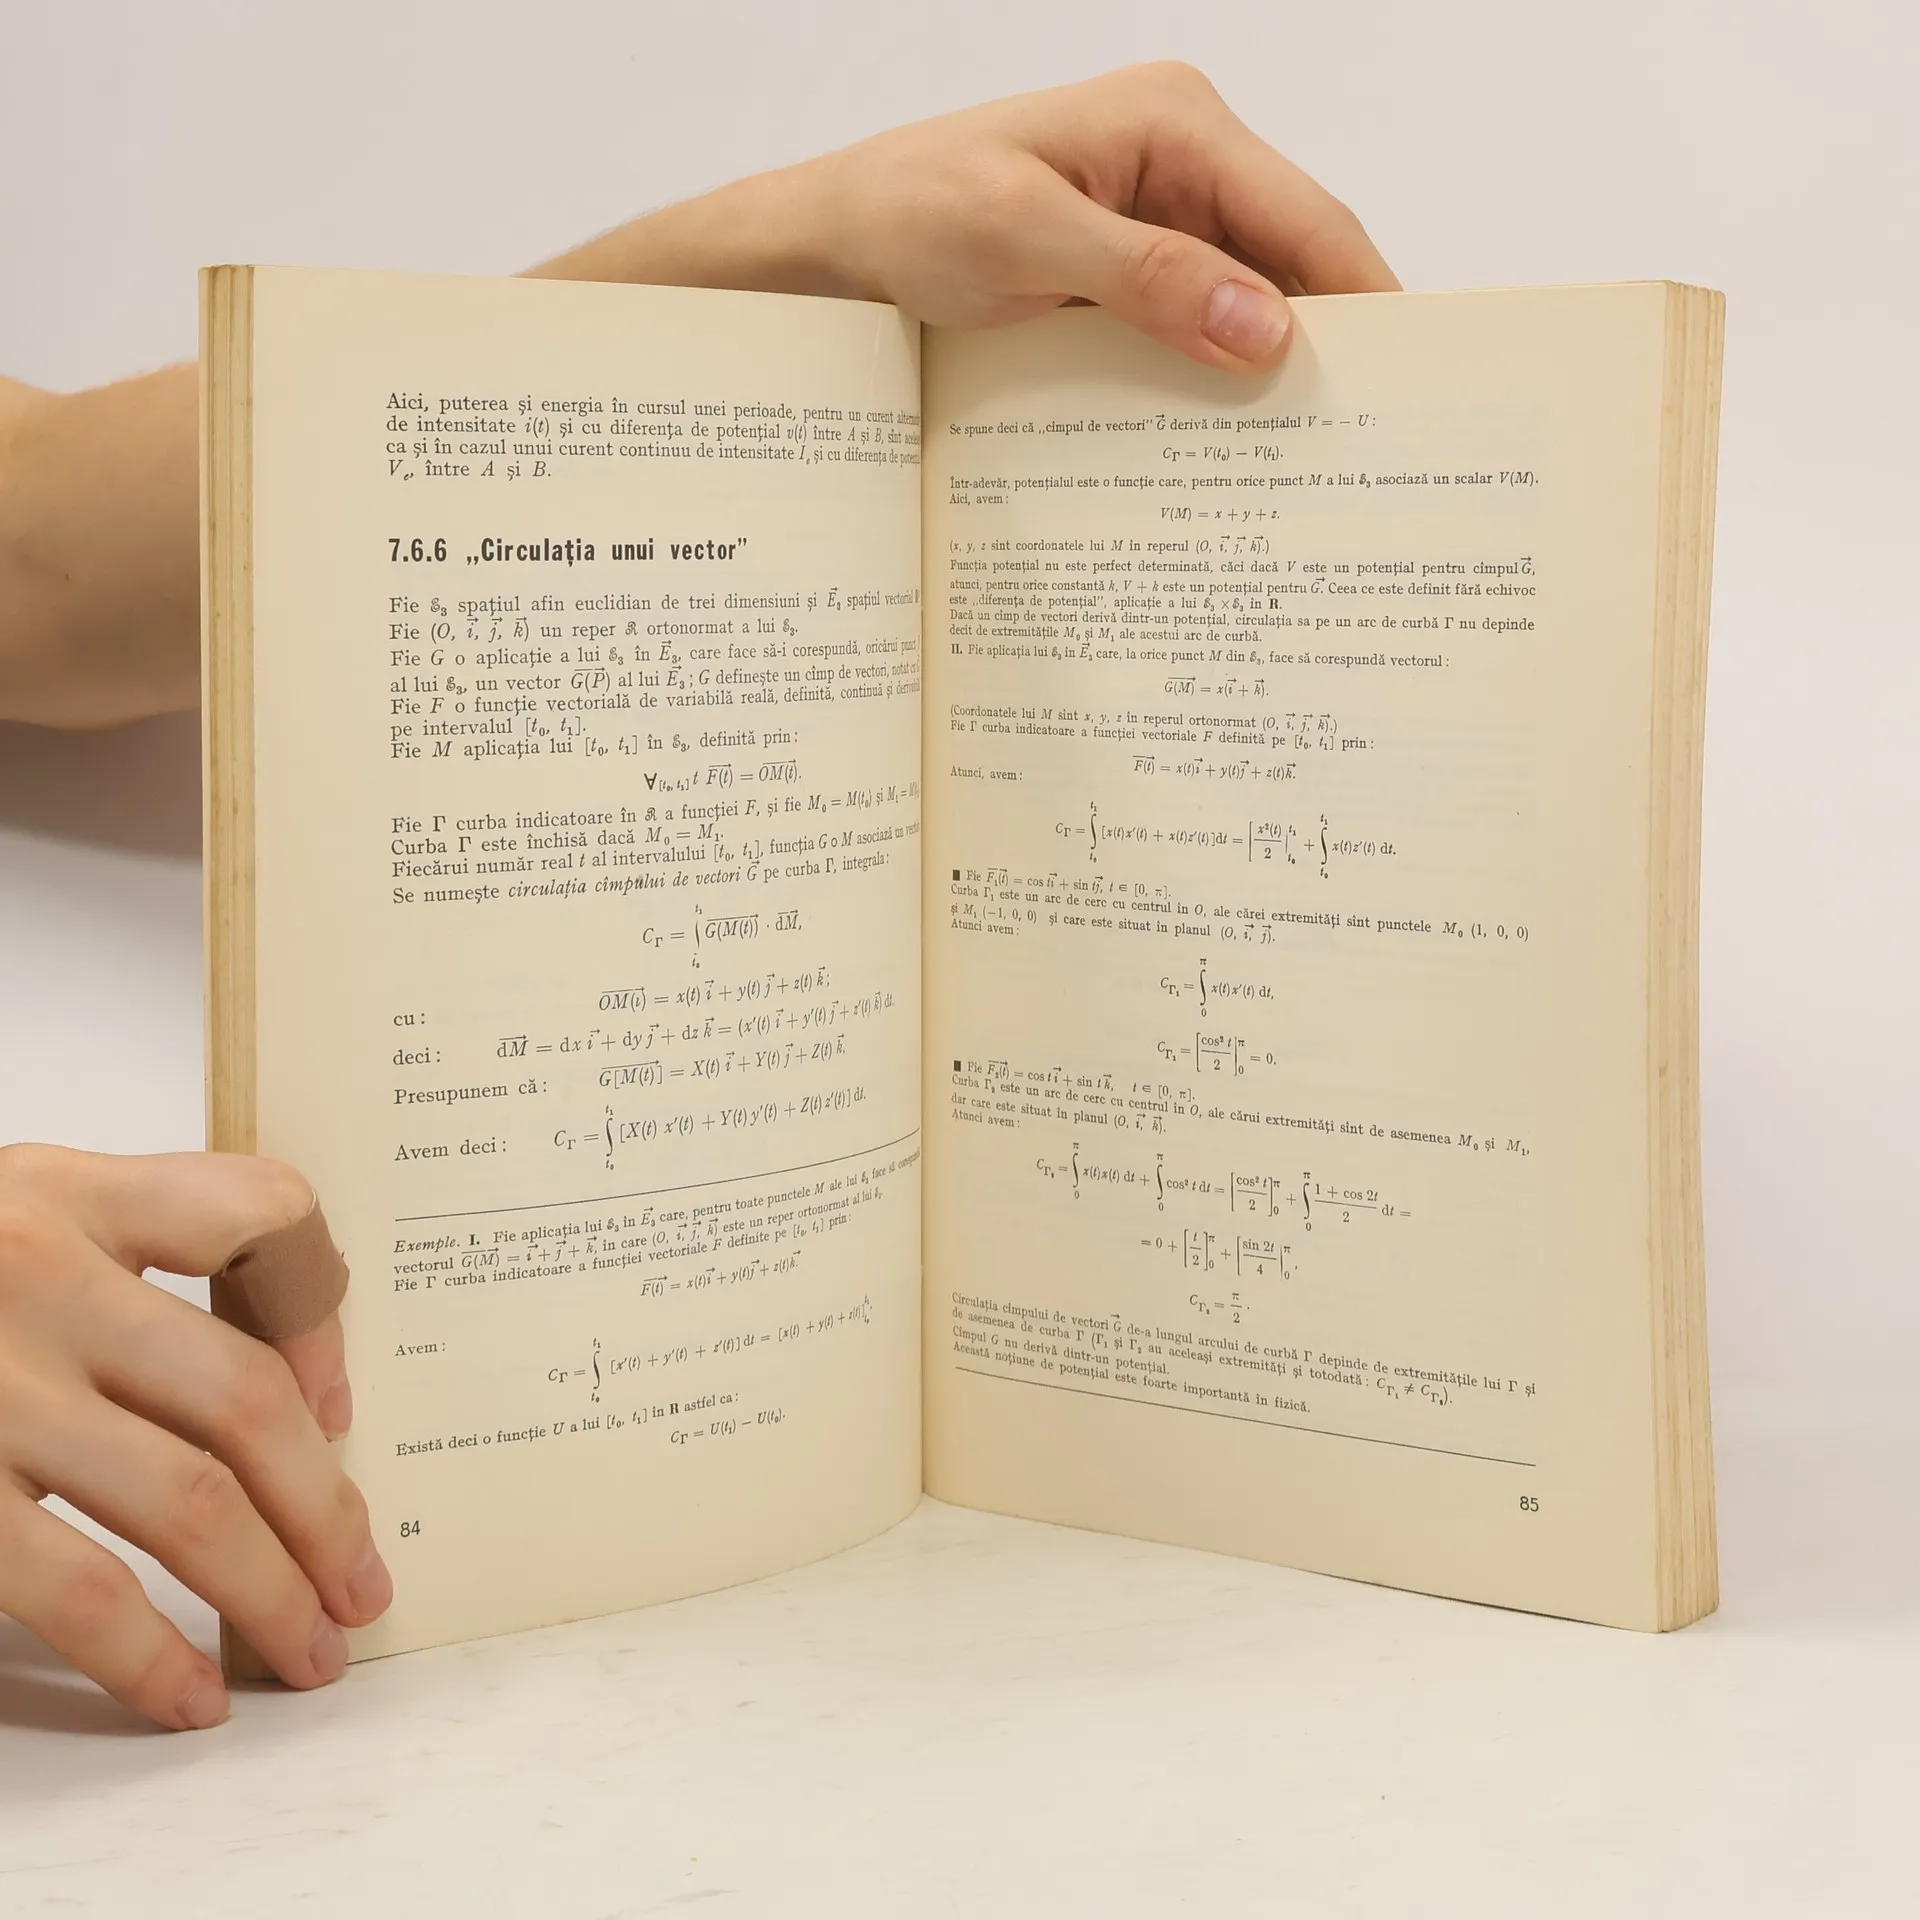 Aici, puterea și energia în cursul unei perioade, pentru un curent
de intensitate i(t) și cu diferența de potențial v(t) între A și B, sînt
ca și în cazul unui curent continuu de intensitate Iₑ și cu diferența de
Vₑ, între A și B.
7.6.6 „Circulația unui vector”
Fie ℰ₃ spațiul afin euclidian de trei dimensiuni și E⃗₃ spațiul vectorial
Fie (O, i⃗, j⃗, k⃗) un reper ℛ ortonormat a lui ℰ₃.
Fie G o aplicație a lui ℰ₃ în E⃗₃, care face să-i corespundă, oricărui punct
al lui ℰ₃, un vector G(P)⃗ al lui E⃗₃; G definește un cîmp de vectori, notat
Fie F o funcție vectorială de variabilă reală, definită, continuă și
pe intervalul [t₀, t₁].
Fie M aplicația lui [t₀, t₁] în ℰ₃, definită prin:
∀[t₀, t₁] t F(t)⃗ = OM(t)⃗.
Fie Γ curba indicatoare în ℛ a funcției F, și fie M₀ = M(t₀) și M₁ =
Curba Γ este închisă dacă M₀ = M₁.
Fiecărui număr real t al intervalului [t₀, t₁], funcția G o M asociază un
Se numește circulația cîmpului de vectori G⃗ pe curba Γ, integrala:
C_Γ = ∫_{t₀}^{t₁} G(M(t))⃗ · dM⃗,
cu: OM(t)⃗ = x(t) i⃗ + y(t) j⃗ + z(t) k⃗;
deci: dM⃗ = dx i⃗ + dy j⃗ + dz k⃗ = (x′(t) i⃗ + y′(t) j⃗ + z′(t) k⃗) dt.
Presupunem că: G[M(t)]⃗ = X(t) i⃗ + Y(t) j⃗ + Z(t) k⃗.
Avem deci: C_Γ = ∫_{t₀}^{t₁} [X(t) x′(t) + Y(t) y′(t) + Z(t) z′(t)] dt.
Exemple. I. Fie aplicația lui ℰ₃ în E⃗₃ care, pentru toate punctele M ale lui ℰ₃ face să
vectorul G(M)⃗ = i⃗ + j⃗ + k⃗, în care (O, i⃗, j⃗, k⃗) este un reper ortonormat al lui ℰ₃.
Fie Γ curba indicatoare a funcției vectoriale F definite pe [t₀, t₁] prin:
F(t)⃗ = x(t)i⃗ + y(t)j⃗ + z(t)k⃗.
Avem:
C_Γ = ∫_{t₀}^{t₁} [x′(t) + y′(t) + z′(t)] dt = [x(t) + y(t) + z(t)]_{t₀}^{t₁},
Există deci o funcție U a lui [t₀, t₁] în R astfel ca:
C_Γ = U(t₁) − U(t₀).
84
Se spune deci că „cîmpul de vectori” G⃗ derivă din potențialul V = − U:
C_Γ = V(t₀) − V(t₁).
Într-adevăr, potențialul este o funcție care, pentru orice punct M a lui ℰ₃ asociază un scalar V(M).
Aici, avem:
V(M) = x + y + z.
(x, y, z sînt coordonatele lui M în reperul (O, i⃗, j⃗, k⃗).)
Funcția potențial nu este perfect determinată, căci dacă V este un potențial pentru cîmpul G⃗,
atunci, pentru orice constantă k, V + k este un potențial pentru G⃗. Ceea ce este definit fără echivoc
este „diferența de potențial”, aplicație a lui ℰ₃ × ℰ₃ în R.
Dacă un cîmp de vectori derivă dintr-un potențial, circulația sa pe un arc de curbă Γ nu depinde
decît de extremitățile M₀ și M₁ ale acestui arc de curbă.
II. Fie aplicația lui ℰ₃ în E⃗₃ care, la orice punct M din ℰ₃, face să corespundă vectorul:
G(M)⃗ = x(i⃗ + k⃗).
(Coordonatele lui M sînt x, y, z în reperul ortonormat (O, i⃗, j⃗, k⃗).)
Fie Γ curba indicatoare a funcției vectoriale F definită pe [t₀, t₁] prin:
F(t)⃗ = x(t)i⃗ + y(t)j⃗ + z(t)k⃗.
Atunci, avem:
C_Γ = ∫_{t₀}^{t₁} [x(t)x′(t) + x(t)z′(t)]dt = [x²(t)/2]_{t₀}^{t₁} + ∫_{t₀}^{t₁} x(t)z′(t) dt.
■ Fie F₁(t)⃗ = cos ti⃗ + sin tj⃗, t ∈ [0, π].
Curba Γ₁ este un arc de cerc cu centrul în O, ale cărei extremități sînt punctele M₀ (1, 0, 0)
și M₁ (−1, 0, 0) și care este situat în planul (O, i⃗, j⃗).
Atunci avem:
C_Γ₁ = ∫_0^π x(t)x′(t) dt,
C_Γ₁ = [cos² t/2]_0^π = 0.
■ Fie F₂(t)⃗ = cos t i⃗ + sin t k⃗, t ∈ [0, π].
Curba Γ₂ este un arc de cerc cu centrul în O, ale cărui extremități sînt de asemenea M₀ și M₁,
dar care este situat în planul (O, i⃗, k⃗).
Atunci avem:
C_Γ₂ = ∫_0^π x(t)x(t) dt + ∫_0^π cos² t dt = [cos² t/2]_0^π + ∫_0^π (1 + cos 2t)/2 dt =
= 0 + [t/2]_0^π + [sin 2t/4]_0^π,
C_Γ₂ = π/2.
Circulația cîmpului de vectori G⃗ de-a lungul arcului de curbă Γ depinde de extremitățile lui Γ și
de asemenea de curba Γ (Γ₁ și Γ₂ au aceleași extremități și totodată: C_Γ₁ ≠ C_Γ₂).
Cîmpul G nu derivă dintr-un potențial.
Această noțiune de potențial este foarte importantă în fizică.
85